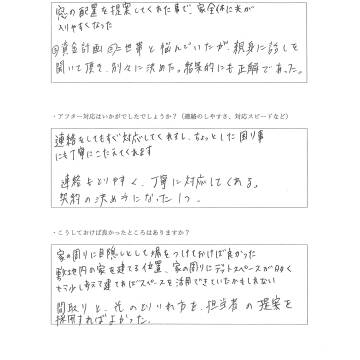 窓の配置を提案してくれた事で、家全体に光が
入りやすくなった
資金計画 二世帯と悩んでいたが、親身に話しを
聞いて頂き、別々に決めた。結果的にも正解であった。
・アフター対応はいかがでしたでしょうか？（連絡のしやすさ、対応スピードなど）
連絡をしてもすぐ対応してくれるし、ちょっとした困り事
にも丁寧にこたえてくれます
連絡もとりやすく、丁寧に対応してくれる。
契約の決め手になった1つ。
・こうしておけば良かったところはありますか？
家の周りに目隠しとして塀をつけておけば良かった
敷地内の家を建てる位置、家の周りにデッドスペースが
もう少し考えて建てればスペースを活用できていたかもしれない
間取りと、光のとりいれ方を、担当者の提案を
採用すればよかった。